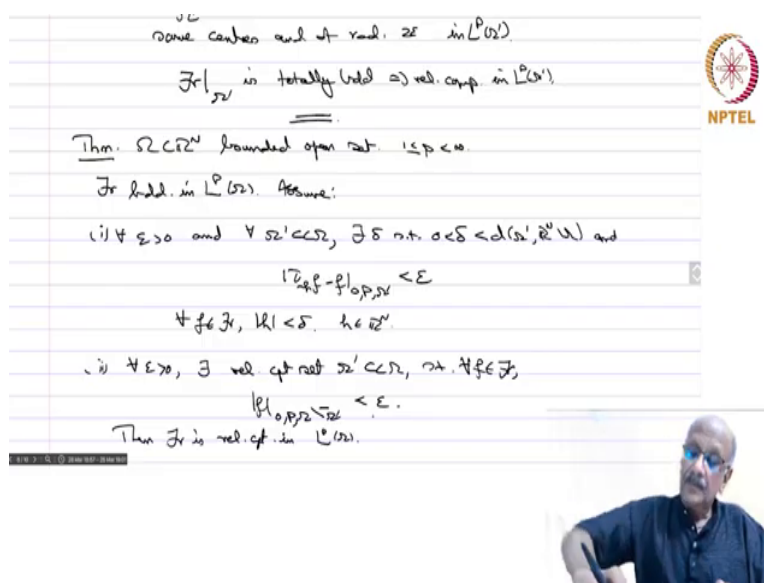 same centres and of rad. 2ε in L^p(Ω').
𝓕|_Ω' is totally bdd ⇒ rel. comp. in L^p(Ω').
NPTEL
Thm. Ω⊂ℝ^N bounded open set. 1≤p<∞.
𝓕 bdd. in L^p(Ω). Assume:
(i) ∀ ε>0 and ∀ Ω'⊂⊂Ω, ∃ δ s.t. 0<δ<d(Ω', ℝ^N\Ω) and
|τ_h f - f|_{0,p,Ω'} < ε
∀ f∈𝓕, |h|<δ. h∈ℝ^N.
(ii) ∀ ε>0, ∃ rel. cpt set Ω'⊂⊂Ω, s.t. ∀f∈𝓕,
|f|_{0,p,Ω\Ω'} < ε.
Then 𝓕 is rel. cpt. in L^p(Ω).